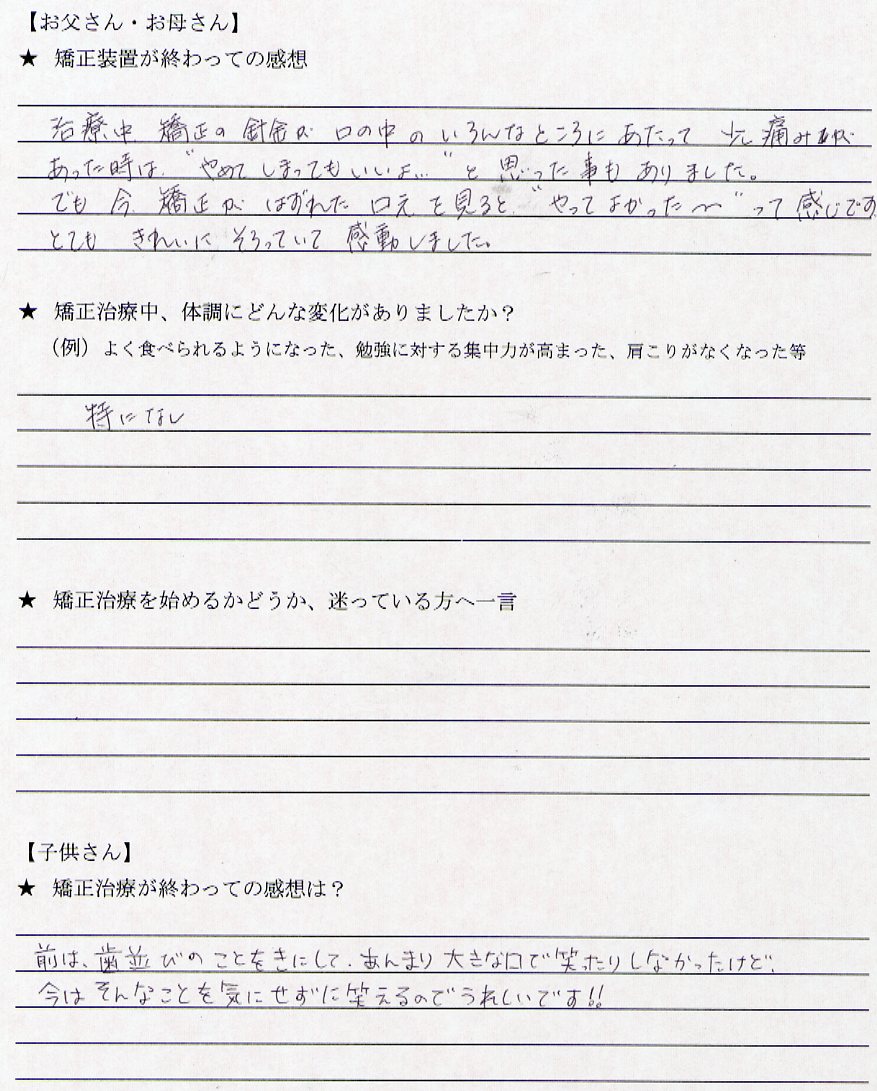 【お父さん・お母さん】
★ 矯正装置が終わっての感想
治療中 矯正の針金が口の中のいろんなところにあたって 痛みが
あった時は、"やめてしまってもいいよ…"と思った事もありました。
でも今 矯正がはずれた口元を見ると、"やってよかった〜"って感じです
とても きれいにそろっていて 感動しました。
★ 矯正治療中、体調にどんな変化がありましたか？
（例）よく食べられるようになった、勉強に対する集中力が高まった、肩こりがなくなった等
特になし
★ 矯正治療を始めるかどうか、迷っている方へ一言
【子供さん】
★ 矯正治療が終わっての感想は？
前は、歯並びのことをきにして、あんまり大きな口で笑ったりしなかったけど、
今はそんなことを気にせずに笑えるのでうれしいです!!